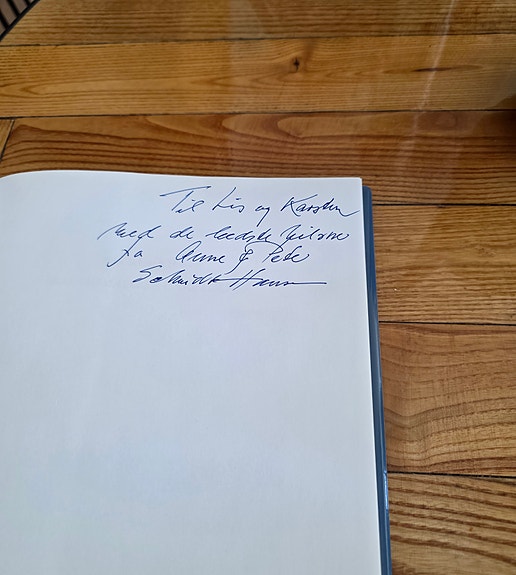 Til Lis og Karsten
med de bedste hilsner
fra Anne & Peter
Schmidt Hansen